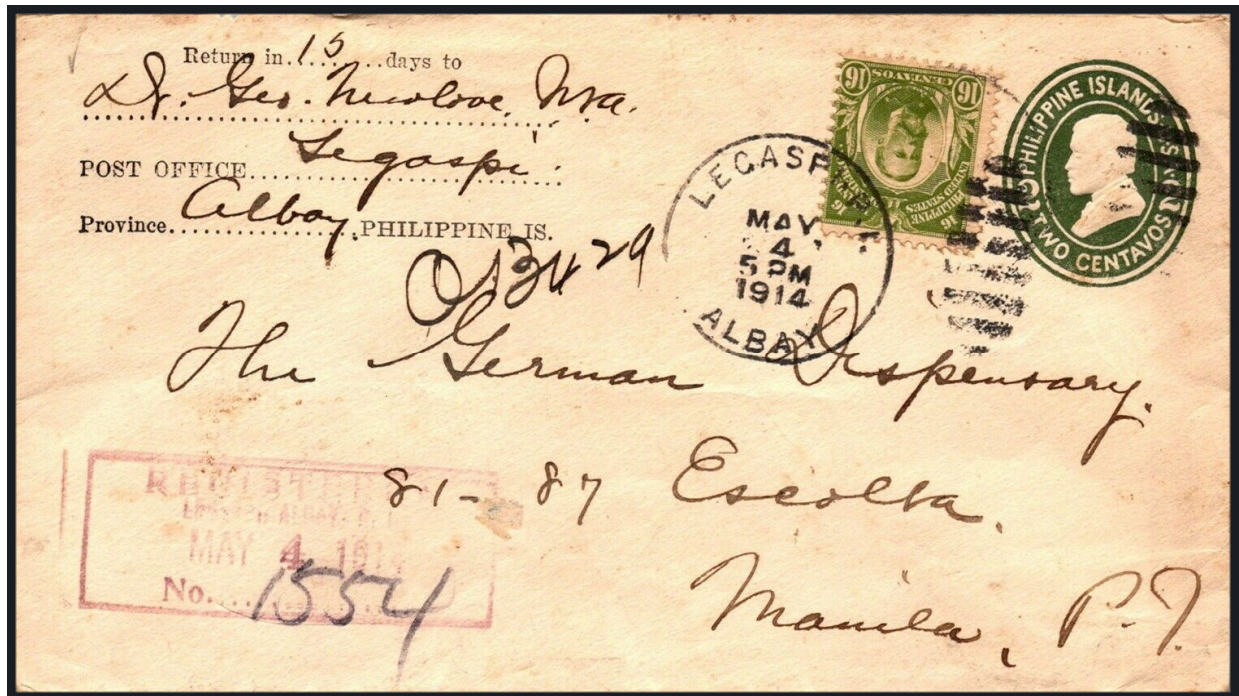 Return in 15 days to
Dr. Geo. Newlove,
POST OFFICE Legaspi.
Province Albay. PHILIPPINE IS.
16 CENTAVOS 16
PHILIPPINE ISLANDS
UNITED STATES
PHILIPPINE ISLANDS.
TWO CENTAVOS
LEGASPI
MAY
4
5 PM
1914
ALBAY
The German Dispensary.
81-87 Escolta.
Manila, P.I.
REGISTERED
MAY 4 1914
No. 1554